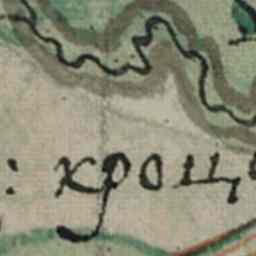 : кроц